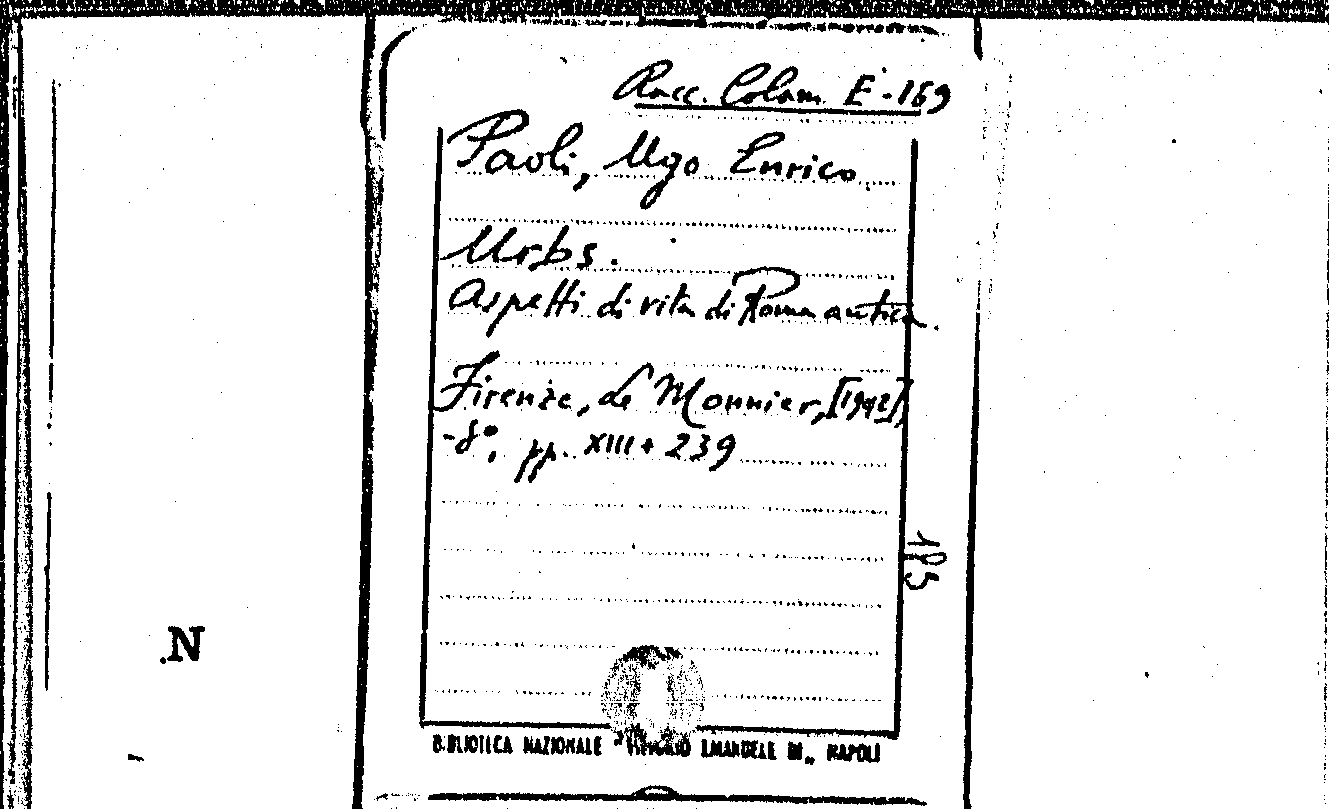 Racc. Colom. E-169
Paoli, Ugo Enrico
Urbs.
Aspetti di vita di Roma antica.
Firenze, Le Monnier, [1942],
-8°, pp. XIII + 239
185
N
BIBLIOTECA NAZIONALE "VITTORIO EMANUELE III„ NAPOLI